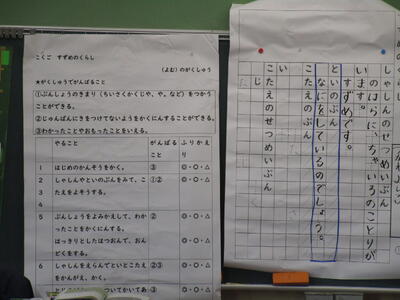 こくご　すずめのくらし
（よむ）のがくしゅう
★がくしゅうでがんばること
①ぶんしょうのきまり（ちいさくかくじゃ、や。など）をつかう
ことができる。
②じゅんばんにきをつけてないようをかくにんすることができる。
③わかったことやおもったことをいえる。
やること
がんばる
こと
ふりかえ
り
1 はじめのかんそうをかく。 ③ ◎・○・△
2 しゃしんやといのぶんをみて、こ ①② ◎・○・△
3 たえをよそうする。
4
5 ぶんしょうをよみかえして、わかっ ◎・○・△
たことをかくにんする。
はっきりとしたはつおんで、おん
どくをする。
6 しゃしんをえらんでといとこたえ ②③ ◎・○・△
をかんがえ、かく。
しゃしんのせつめいぶん
のはらに、ちゃいろのことりが
います。
すずめです。
といのぶん
なにをしているのでしょう。
こたえのぶん
こたえのせつめいぶん